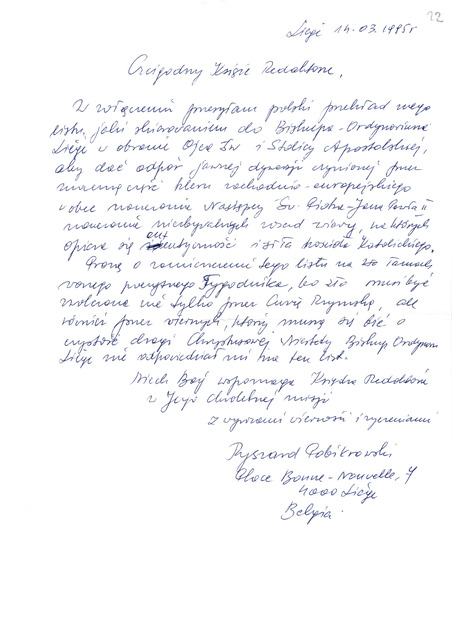 22
Liège 14.03.1995r
Czcigodny Księże Redaktorze,
W załączeniu przesyłam polski przekład mego
listu, jaki skierowałem do Biskupa-Ordynariusza
Liège w obronie Ojca Św i Stolicy Apostolskiej,
aby dać odpór jawnej dywersji czynionej przez
znaczną część kleru zachodnio-europejskiego
wobec nauczania Następcy Św. Piotra-Jana Pawła II
nauczania niezbywalnych zasad wiary, na których
opiera się autentyczność i siła Kościoła Katolickiego.
Proszę o zamieszczenie tego listu na łamach
poczytnego Tygodnika, bo zło musi być
zwalczane nie tylko przez Curię Rzymską, ale
również przez wiernych, którzy muszą się bić o
czystość drogi Chrystusowej. Niestety Biskup Ordynar.
Liège nie odpowiedział mi na ten list.
Niech Bóg wspomaga Księdza Redaktora
w Jego chwalebnej misji
z wyrazami wierności i życzeniami
Ryszard
Place Bonne-Nouvelle, 7
4000 Liège
Belgia.